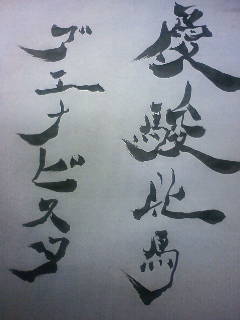 優駿牝馬
ブエナビスタ